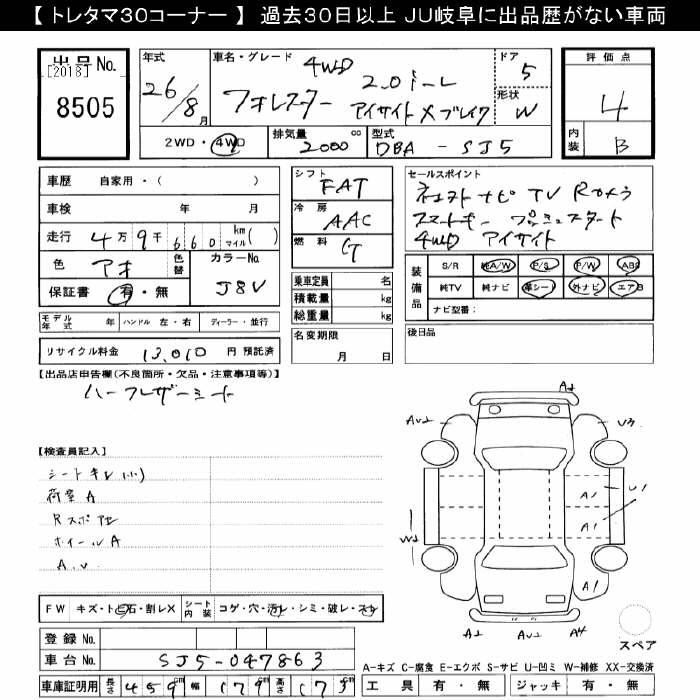 【 トレタマ30コーナー 】 過去30日以上 JU岐阜に出品歴がない車両
出品No.
[2018]
8505
年式
26/8月
車名・グレード
4WD
フォレスター
2.0i-L
アイサイト Xブレイク
ドア
5
形状
W
評価点
4
内装
B
2WD・4WD
排気量
2000 cc
型式
DBA - SJ5
車歴 自家用・( )
車検 年 月
走行 4万9千660 km マイル( )
色 アオ 色替
カラーNo.
J8V
保証書 有・無
シフト
FAT
冷房
AAC
燃料
G
乗車定員 名
積載量 kg
総重量 kg
セールスポイント
ナビ TV Rカメラ
スマートキー プッシュスタート
4WD アイサイト
装備品
S/R 純A/W P/S P/W ABS
純TV 純ナビ 革シート 外ナビ エアB
ナビ型番:
モデル年式 年 ハンドル 左・右 ディーラー・並行
リサイクル料金 13,010 円 預託済
名変期限
月 日
後日品
【出品店申告欄(不良箇所・欠品・注意事項等)】
ハーフレザーシート
【検査員記入】
シートキレ(小)
荷室A
Rスポ
ホイールA
A.U
A2
AU2
U3
A1
U1
A1
W2
A1
A2
AU2
A4
スペア
FW キズ・ト石・割レX シート内装 コゲ・穴・汚レ・シミ・破レ・スレ
登録No.
車台No. SJ5-047863
車庫証明用 長さ 459cm 幅 179cm 高さ 173cm
A-キズ C-腐食 E-エクボ S-サビ U-凹ミ W-補修 XX-交換済
工具 有・無 ジャッキ 有・無